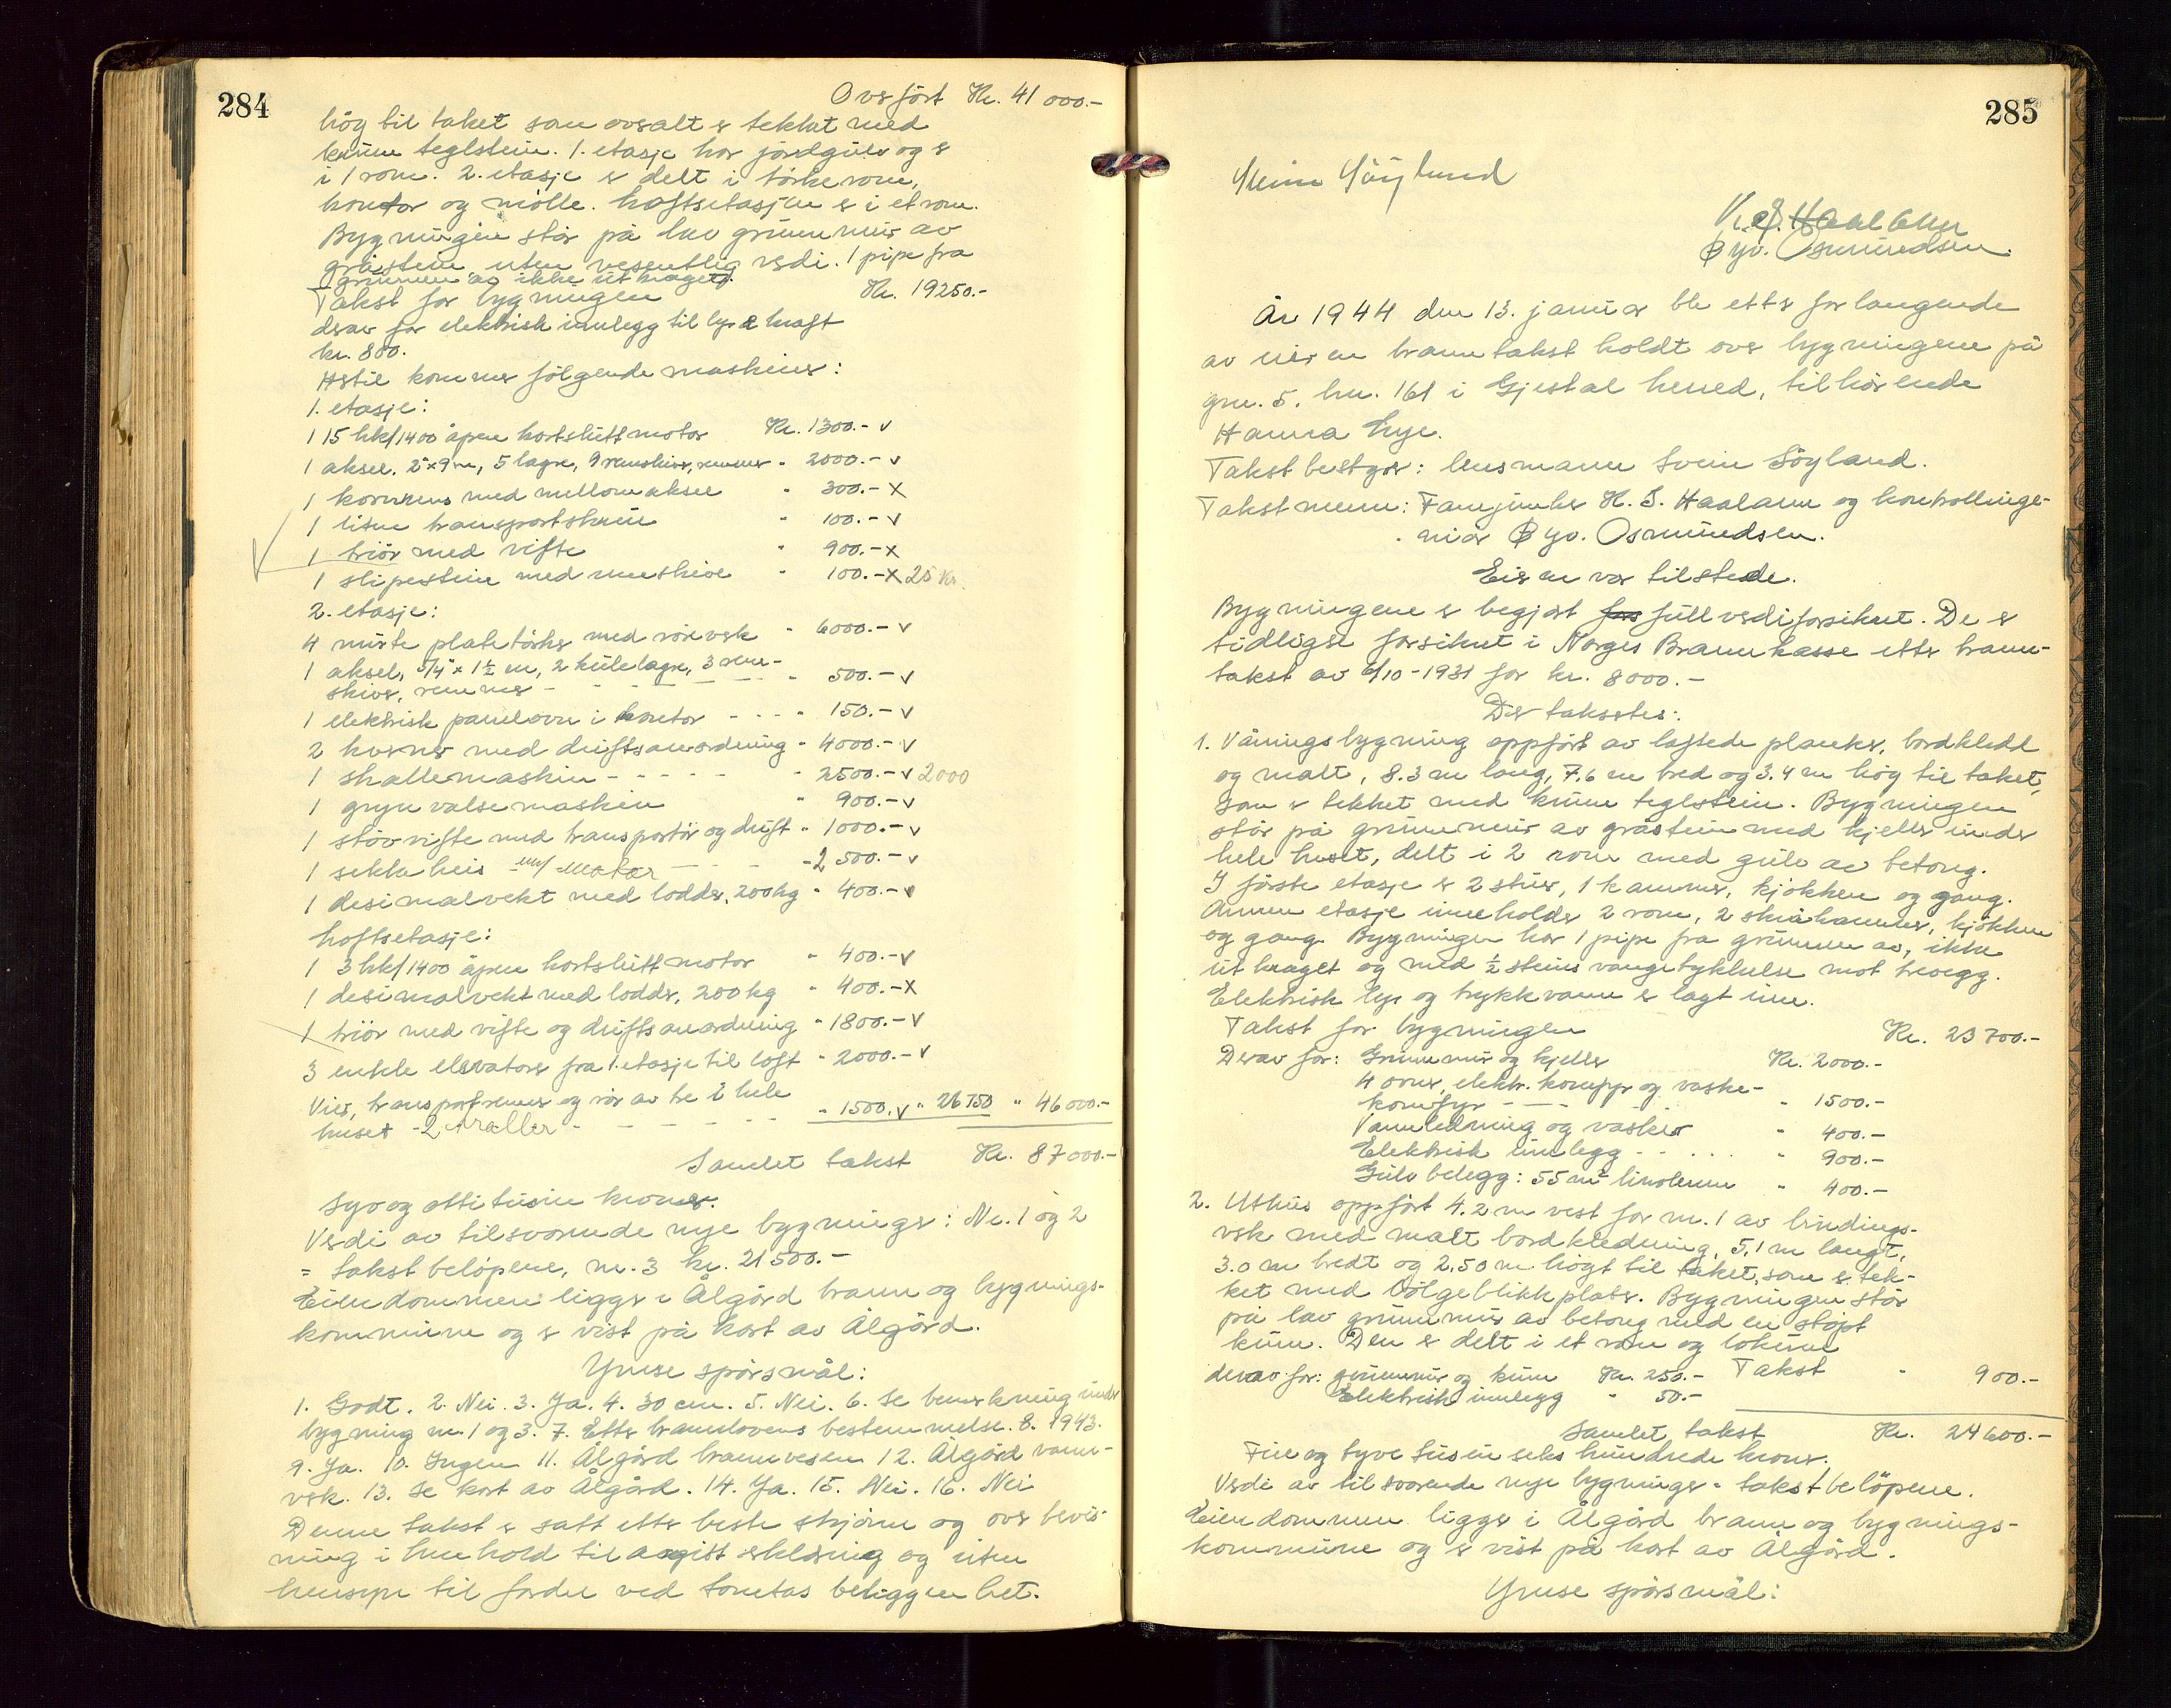 284
Overført Kr. 41 000.-
høg til taket som overalt er tekket med
krum teglstein. 1. etasje har jordgulv og er
i 1 rom. 2. etasje er delt i tørkerom,
kontor og mölle. Loftsetasjen er i et rom.
Bygningen står på lav grunnmur av
gråstein uten vesentlig verdi. 1 pipe fra
grunnen av ikke utkraget.
Takst for bygningen Kr. 19250.-
derav for elektrisk innlegg til lys & kraft
kr. 800.
Hertil kommer følgende maskiner:
1. etasje:
1 15 hk/1400 åpen kortslutt motor Kr. 1300.- v
1 aksel. 2"x9 m, 5 lagre, 9 remskiver, remmer " 2000.- v
1 kornrens med mellomaksel " 300.- x
1 liten transportskrue " 100.- v
1 triör med vifte " 900.- x
1 slipestein med remskive " 100.- x 25 Kr.
2. etasje:
4 murte platetörker med rörverk " 6000.- v
1 aksel, 5/4" x 1½ m, 2 kulelagre, 3 rem-
skiver, remmer - - - - " 500.- v
1 elektrisk panelovn i kontor - - - " 150.- v
2 kverner med driftsanordning " 4000.- v
1 skallemaskin - - - - - " 2500.- v 2000
1 grynvalsemaskin " 900.- v
1 stövvifte med transportör og drift " 1000.- v
1 sekkeheis m/ motor - - - - 2 500.- v
1 desimalvekt med lodder, 200 kg " 400.- v
Loftsetasje:
1 3 hk/1400 åpen kortslutt motor " 400.- v
1 desimalvekt med lodder, 200 kg " 400.- x
1 triör med vifte og driftsanordning " 1800.- v
3 enkle elevatorer fra 1. etasje til loft " 2000.- v
Vier, transportrenner og rör av tre i hele
huset - 2 traller - - - - - - " 1500. v " 26 750 " 46 000.-
Samlet takst Kr. 87 000.-
Syv og åttitusin kroner.
Verdi av tilsvarende nye bygninger: Nr. 1 og 2
= takstbelöpene, nr. 3 kr. 21 500.-
Eiendommen ligger i Ålgård brann og bygnings-
kommune og er vist på kart av Ålgård.
Ymse spörsmål:
1. Godt. 2. Nei. 3. Ja. 4. 30 cm. 5. Nei. 6. Se bemerkning under
bygning nr. 1 og 3. 7. Etter brannlovens bestemmelse. 8. 1943.
9. Ja. 10. Ingen 11. Ålgård brannvesen 12. Ålgård vann-
verk. 13. Se kart av Ålgård. 14. Ja. 15. Nei. 16. Nei
Denne takst er satt etter beste skjönn og over bevis-
ning i henhold til avgitt erklæring og uten
hensyn til fordel ved tomtas beliggenhet.
285
Svein Söyland
K. S. Haaland
Öyv. Osmundsen.
År 1944 den 13. januar ble etter forlangende
av eieren branntakst holdt over bygningene på
gnr. 5. bnr. 161 i Gjestal herred, tilhörende
Hanna Lye.
Takstbestyrer: lensmann Svein Söyland.
Takstmenn: Fanejunker K. S. Haaland og kontrollinge-
niör Öyv. Osmundsen.
Eieren var tilstede.
Bygningene er begjært for fullverdiforsikret. De er
tidligere forsikret i Norges Brannkasse etter brann-
takst av 6/10-1931 for kr. 8000.-
Der takseres:
1. Våningsbygning oppfört av laftede planker, bordkledd
og malt, 8.3 m lang, 7.6 m bred og 3.4 m høg til taket,
som er tekket med krum teglstein. Bygningen
står på grunnmur av gråstein med kjeller under
hele huset, delt i 2 rom med gulv av betong.
I förste etasje er 2 stuer, 1 kammer, kjökken og gang.
Annen etasje inneholder 2 rom, 2 skråkammer, kjökken
og gang. Bygningen har 1 pipe fra grunnen av, ikke
utkraget og med ½ steins vangetykkelse mot trevegg.
Elektrisk lys og trykkvann er lagt inn.
Takst for bygningen Kr. 23 700.-
Derav for: Grunnmur og kjeller Kr. 2000.-
4 ovner, elektr. komfyr og vaske-
komfyr - - - " 1500.-
Vannledning og vasker " 400.-
Elektrisk innlegg - - . . . . " 900.-
Gulvbelegg: 55 m² linoleum " 400.-
2. Uthus oppfört 4.2 m vest for nr. 1 av bindings-
verk med malt bordkledning, 5,1 m langt,
3.0 m bredt og 2,50 m högt til taket, som er tek-
ket med bölgeblikkplater. Bygningen står
på lav grunnmur av betong med en stöpt
kum. Den er delt i et rom og lokum
Takst " 900.-
derav for: grunnmur og kum Kr. 250.-
Elektrisk innlegg " 50.-
Samlet takst Kr. 24 600.-
Fire og tyve tusin seks hundrede kroner.
Verdi av tilsvarende nye bygninger = takstbelöpene.
Eiendommen ligger i Ålgård brann og bygnings-
kommune og er vist på kart av Ålgård.
Ymse spörsmål: